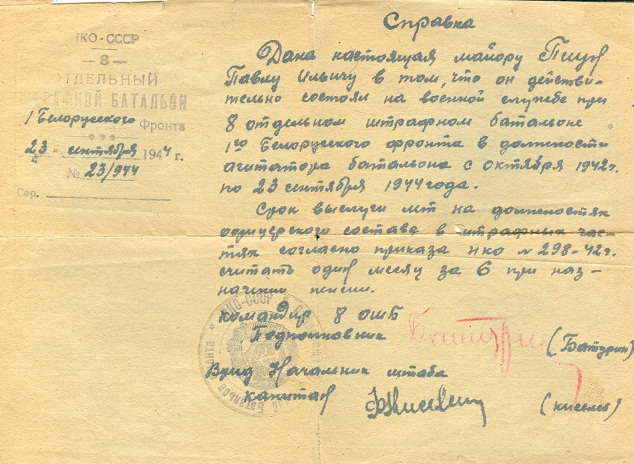 НКО-СССР
8
ОТДЕЛЬНЫЙ
ШТРАФНОЙ БАТАЛЬОН
1 Белорусского Фронта
23 сентября 1944 г.
№ 23/944
Гор.
Справка
Дана настоящая майору Пиун
Павлу Ильичу в том, что он действи-
тельно состоял на военной службе при
8 отдельном штрафном батальоне
1го Белорусского фронта в должности
агитатора батальона с октября 1942г.
по 23 сентября 1944 года.
Срок выслуги лет на должностях
офицерского состава в штрафных час-
тях согласно приказа НКО № 298-42г.
считать один месяц за 6 при наз-
начении пенсии.
Командир 8 ОШБ
Подполковник Батурин (Батурин)
Врид Начальник штаба
капитан (Киселев)
НКО-СССР